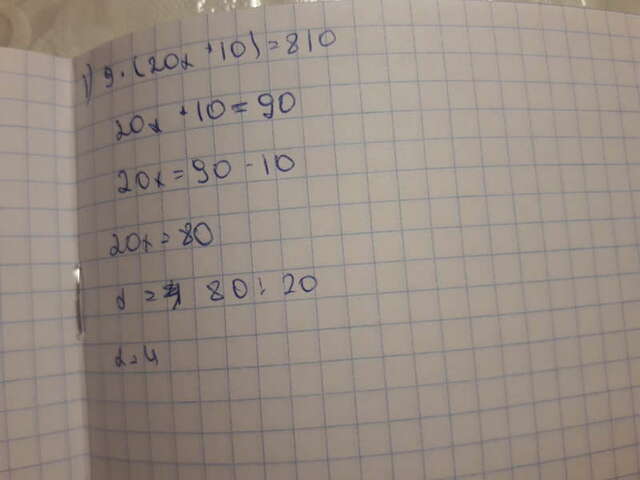 1) 9·(20x+10)=810
20x+10=90
20x=90-10
20x=80
x= 80:20
x=4